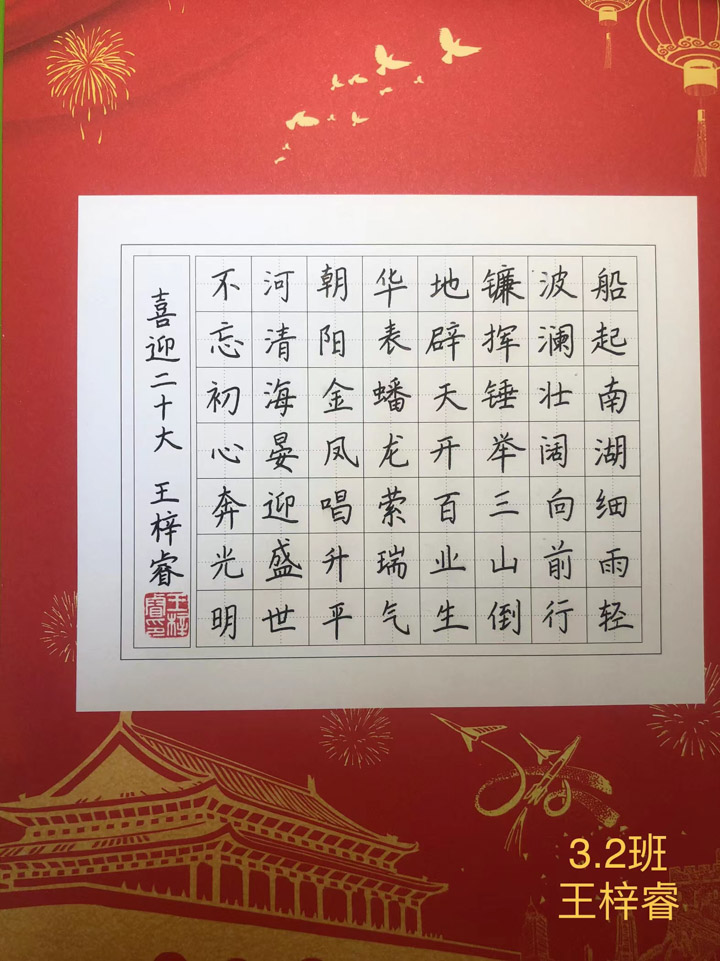 船起南湖细雨轻
波澜壮阔向前行
镰挥锤举三山倒
地辟天开百业生
华表蟠龙萦瑞气
朝阳金凤唱升平
河清海晏迎盛世
不忘初心奔光明
喜迎二十大 王梓睿
王梓睿印
3.2班
王梓睿